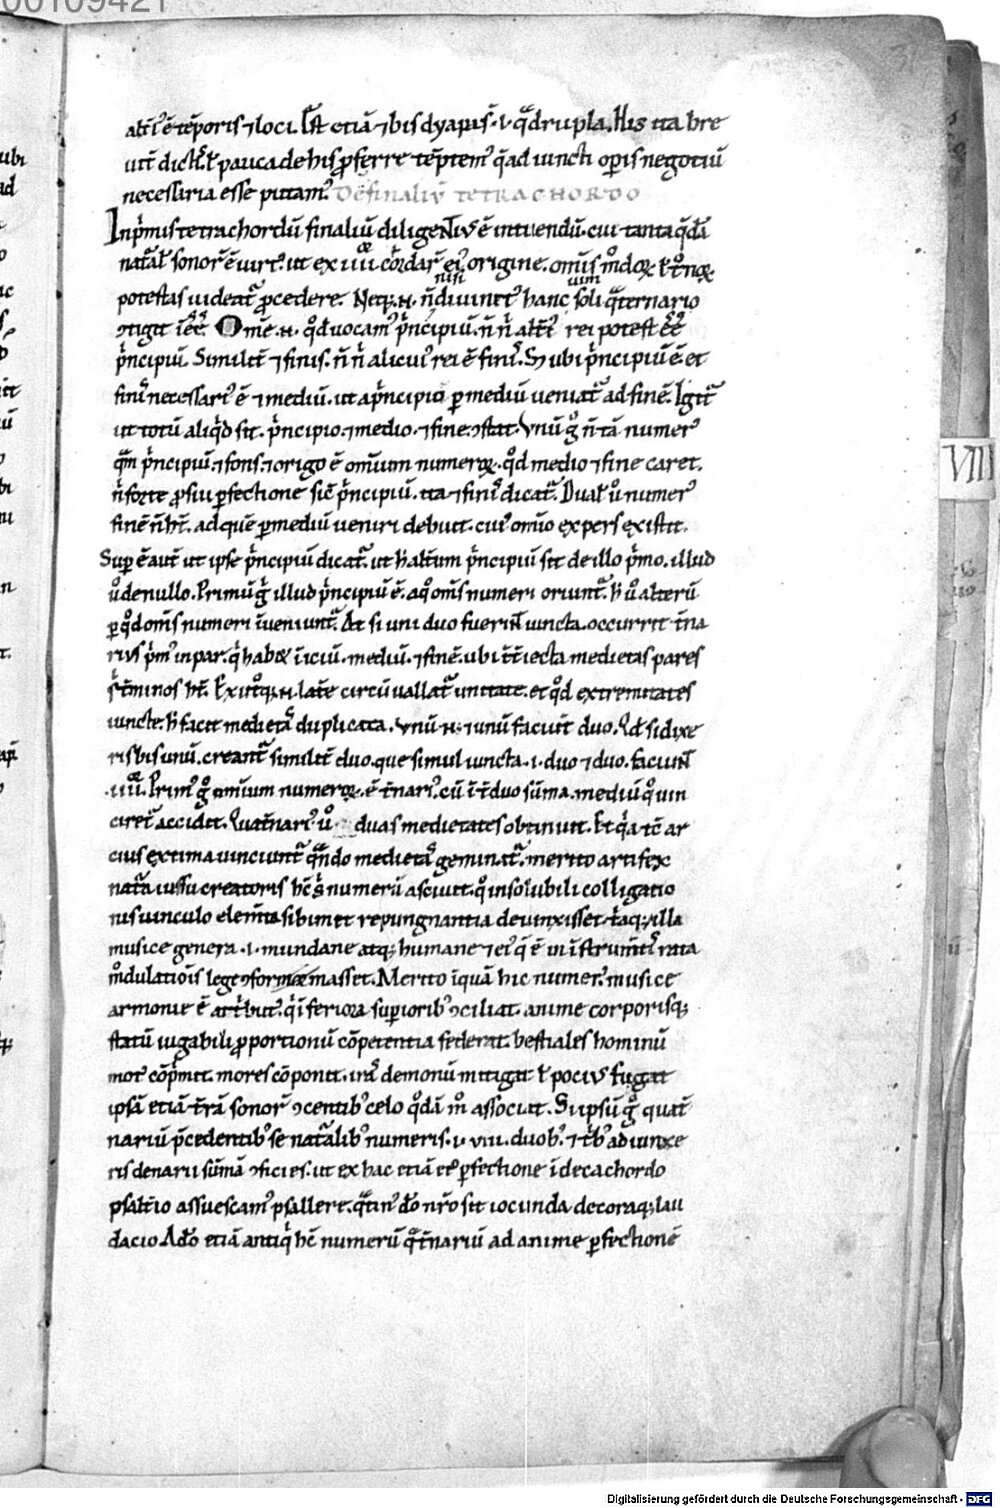 00109421
alt̄i ē tēporis ⁊ loci. Est etiā ⁊ bis dyapas̄ .i. q̄drupla. His ita bre
uit̄ dictis pauca de his ꝓferre tēptem' q̄ ad iuncti op̄is negotiū
necessaria esse putam'. De finaliū TETRACHORDO
Inp̄mis tetrachordū finaliū diligentius ē intuendū. cui tanta q̄dā
nat̄al' sonor̄ ē uirt'. ut ex iiii cordar̄ ei' origine. om̄is m̄doꝝ ł t̄noꝝ
potestas uideat̄ ꝓcedere. Neq; .n. n̄ diuinit' hanc soli q̄ternario
nisi uim
ꝯtigit īeē. Om̄e .n. q̄d uocam' p̄ncipiū. n̄ n̄ alt̄i' rei potest eē
p̄ncipiū. Similit̄ ⁊ finis. n̄ n̄ alicui' rei ē finis. S; ubi p̄ncipiū ē. et
finis necessari' ē ⁊ mediū. ut a p̄ncipio ꝑ mediū ueniat̄ ad finē. Igit̄
ut totū aliq̄d sit. p̄ncipio. ⁊ medio. ⁊ fine ꝯstat. Vnū g̊ n̄ tā numer'
q̄m p̄ncipiū. ⁊ fons. ⁊ origo ē omnium numeroꝝ. q̄d medio ⁊ fine caret.
n̄ forte ꝓ sui ꝑfectione sic̄ p̄ncipiū. ita ⁊ finis dicat̄. Dual' ů numer'
finē n̄ ht̄. ad quē ꝑ mediū ueniri debuit. cui' om̄io expers existit.
Sup̄ ē aut̄ ut ipse p̄ncipiū dicat̄. ut h̄ alt̄um p̄ncipiū sit de illo p̄mo. illud
ů de nullo. Primū g̊ illud p̄ncipiū ē. a q̊ om̄s numeri oriunt̄. h̄ ů alterū
ꝑ q̄d om̄s numeri īueniunt̄. At si uni duo fuerint iuncta. occurrit t̄na
rius p̄m' inpar. q̄ habet īiciū. mediū. ⁊ finē. ubi īt̄iecta medietas pares
s̄ t̄minos ht̄. Ex utq̄q; .n. lat̄e circū uallat̄ unitate. et q̄d extremitates
iuncte. h̄ facit medietā duplicata. Vnū .n. ⁊ unū faciūt duo. Qd̄ si dixe
ris bis unū. creant̄ similit̄ duo. que simul iuncta .i. duo ⁊ duo. faciunt
.iiii. Prim' g̊ omnium numeroꝝ. ē t̄nari'. cū īt̄ duo sūma. mediū q̄ uin
ciret̄ accidit. Quat̄nari' ů duas medietates obtinuit. Et q̄a tc̄ ar
cius extima uinciunt̄ q̄ndo medietas geminat̄. merito artifex
nat̄a iussu creatoris hc̄ s̄ numerū asciuit. q̊ insolubili colligatio
nis uinculo elem̄ta sibimet repungnantia deuinxisset. t̄aq; illa
musice genera .i. mundane atq; humane ⁊ ei' q̄ ē in īstrum̄tis rata
m̄dulatiois lege ꝯformasset. Merito īquā hic numer' musice
armonie ē attribut'. q̄ īferiora sup̄iorib' ꝯciliat. anime corporisq;
statū iugabili ꝓportionū cōpetentia federat. bestiales hominū
mot' cōp̄mit. mores cōponit. irā demonū mitigat ł poci' fugat
ipsā etiā t̄rā sonor̄ ꝯcentib' celo q̄dā m̄ associat. Si ipsū g̊ quat̄
nariū p̄cedentib' se nat̄alib' numeris .i. uni. duob'. ⁊ t̄b' adiunxe
ris denarii sūmā ꝯficies. ut ex hac etiā ei' ꝑfectione ī decachordo
psalt̄io assuescam' psallere. q̄tin' dō nr̄o sit iocunda decoraq; lau
dacio. Adō etiā antiq̄ hc̄ numerū q̄t̄nariū ad anime ꝑfectionē
VIII
Digitalisierung gefördert durch die Deutsche Forschungsgemeinschaft - DFG